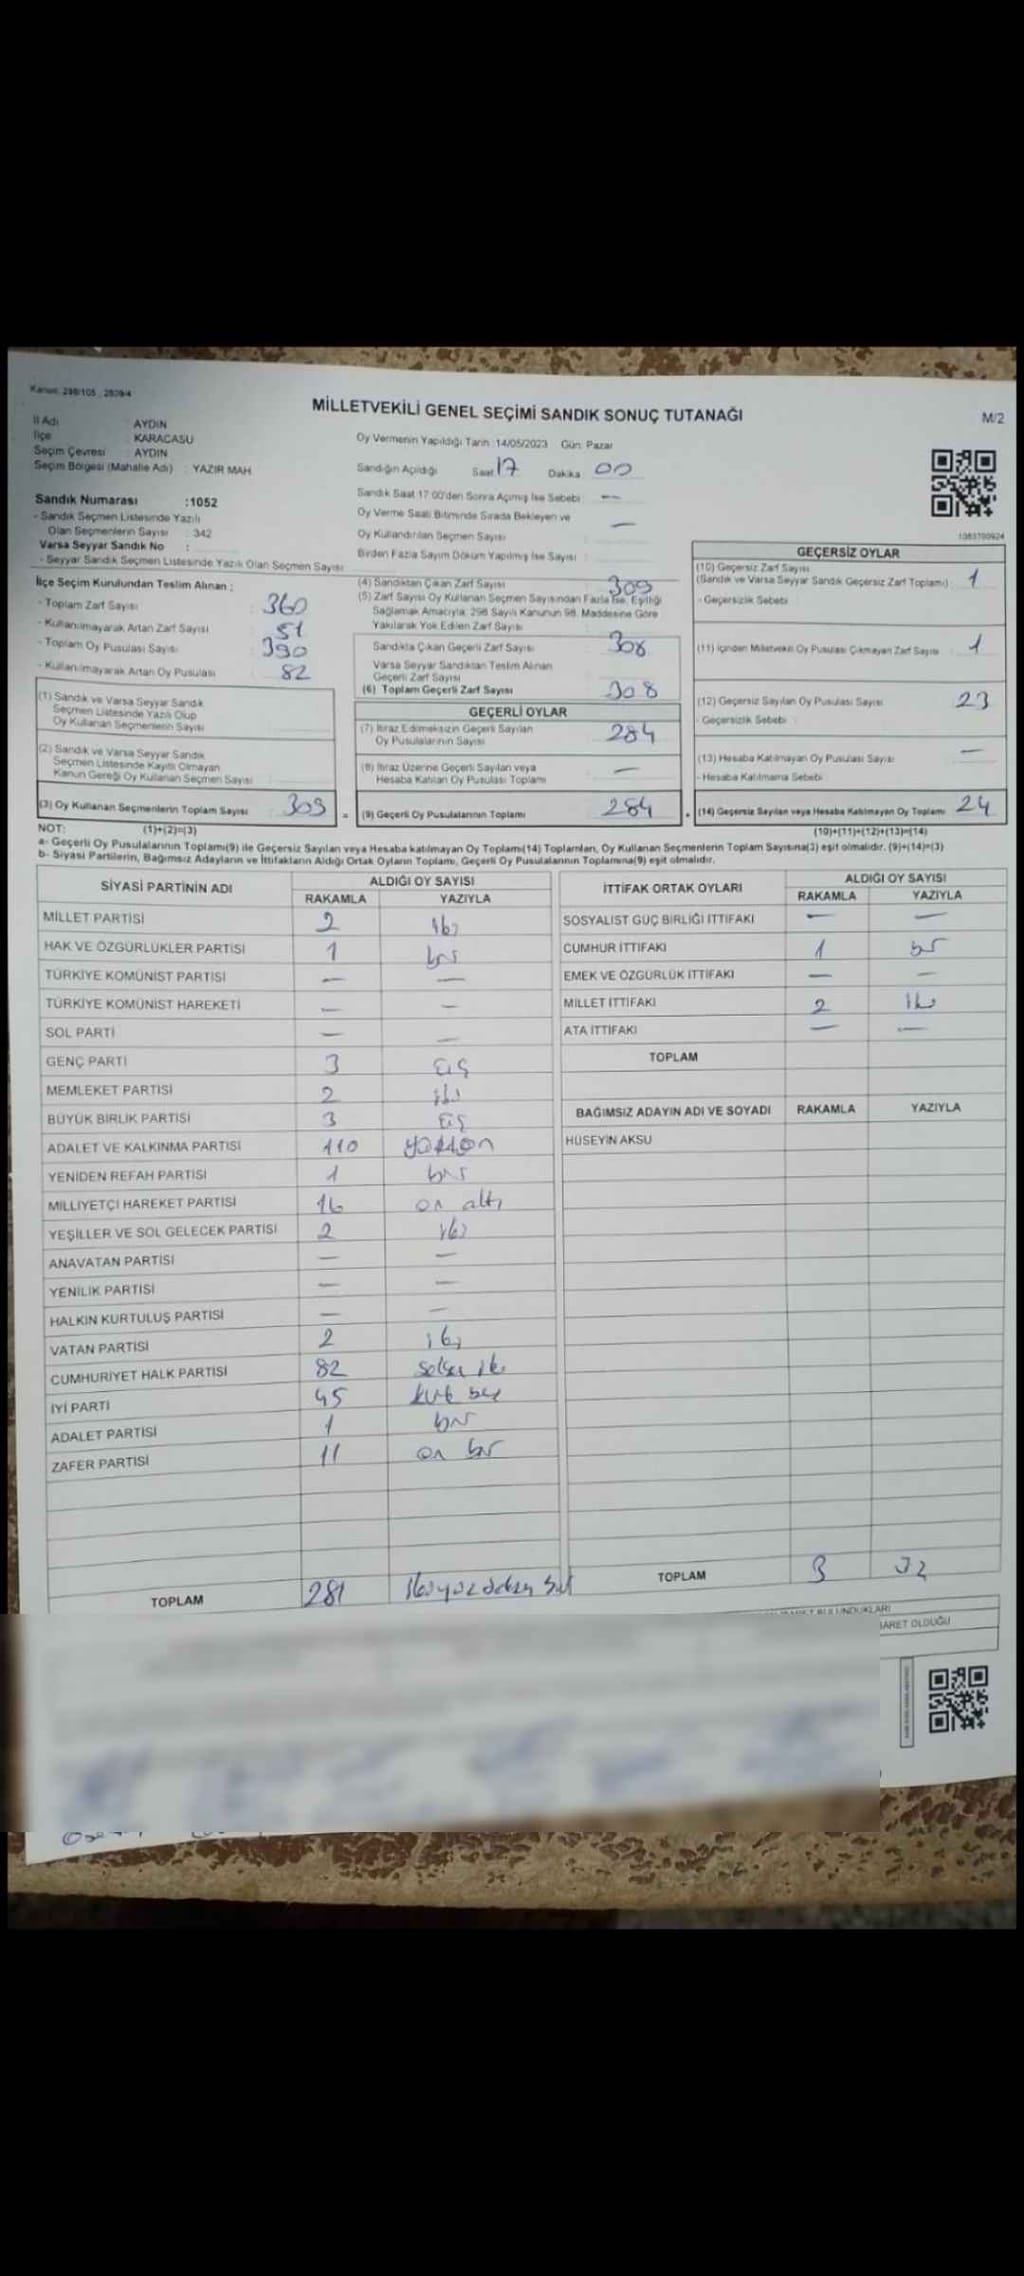 Kanun: 298/105 , 2839/4
MİLLETVEKİLİ GENEL SEÇİMİ SANDIK SONUÇ TUTANAĞI
M/2
İl Adı : AYDIN
İlçe : KARACASU
Seçim Çevresi : AYDIN
Seçim Bölgesi (Mahalle Adı) : YAZIR MAH
Oy Vermenin Yapıldığı Tarih :14/05/2023 Gün: Pazar
Sandığın Açıldığı Saat 17 Dakika 00
Sandık Saat 17:00'den Sonra Açılmış İse Sebebi : —
Oy Verme Saati Bitiminde Sırada Bekleyen ve
Oy Kullandırılan Seçmen Sayısı : —
Birden Fazla Sayım Döküm Yapılmış İse Sayısı :
Sandık Numarası :1052
- Sandık Seçmen Listesinde Yazılı
Olan Seçmenlerin Sayısı : 342
Varsa Seyyar Sandık No :
- Seyyar Sandık Seçmen Listesinde Yazılı Olan Seçmen Sayısı
İlçe Seçim Kurulundan Teslim Alınan :
- Toplam Zarf Sayısı : 360
- Kullanılmayarak Artan Zarf Sayısı : 51
- Toplam Oy Pusulası Sayısı : 390
- Kullanılmayarak Artan Oy Pusulası : 82
(1) Sandık ve Varsa Seyyar Sandık
Seçmen Listesinde Yazılı Olup
Oy Kullanan Seçmenlerin Sayısı
(2) Sandık ve Varsa Seyyar Sandık
Seçmen Listesinde Kayıtlı Olmayan
Kanun Gereği Oy Kullanan Seçmen Sayısı
(3) Oy Kullanan Seçmenlerin Toplam Sayısı 309
(1)+(2)=(3)
(4) Sandıktan Çıkan Zarf Sayısı : 309
(5) Zarf Sayısı Oy Kullanan Seçmen Sayısından Fazla İse, Eşitliği
Sağlamak Amacıyla, 298 Sayılı Kanunun 98. Maddesine Göre
Yakılarak Yok Edilen Zarf Sayısı :
Sandıkta Çıkan Geçerli Zarf Sayısı : 308
Varsa Seyyar Sandıktan Teslim Alınan
Geçerli Zarf Sayısı
(6) Toplam Geçerli Zarf Sayısı : 308
GEÇERLİ OYLAR
(7) İtiraz Edilmeksizin Geçerli Sayılan
Oy Pusulalarının Sayısı 284
(8) İtiraz Üzerine Geçerli Sayılan veya
Hesaba Katılan Oy Pusulası Toplamı —
(9) Geçerli Oy Pusulalarının Toplamı 284
1083700924
GEÇERSİZ OYLAR
(10) Geçersiz Zarf Sayısı
(Sandık ve Varsa Seyyar Sandık Geçersiz Zarf Toplamı) : 1
- Geçersizlik Sebebi :
(11) İçinden Milletvekili Oy Pusulası Çıkmayan Zarf Sayısı : 1
(12) Geçersiz Sayılan Oy Pusulası Sayısı : 23
- Geçersizlik Sebebi :
(13) Hesaba Katılmayan Oy Pusulası Sayısı : —
- Hesaba Katılmama Sebebi :
(14) Geçersiz Sayılan veya Hesaba Katılmayan Oy Toplamı 24
(10)+(11)+(12)+(13)=(14)
NOT:
a- Geçerli Oy Pusulalarının Toplamı(9) ile Geçersiz Sayılan veya Hesaba katılmayan Oy Toplamı(14) Toplamları, Oy Kullanan Seçmenlerin Toplam Sayısına(3) eşit olmalıdır. (9)+(14)=(3)
b- Siyasi Partilerin, Bağımsız Adayların ve İttifakların Aldığı Ortak Oyların Toplamı, Geçerli Oy Pusulalarının Toplamına(9) eşit olmalıdır.
SİYASİ PARTİNİN ADI ALDIĞI OY SAYISI
RAKAMLA YAZIYLA
MİLLET PARTİSİ 2 iki
HAK VE ÖZGÜRLÜKLER PARTİSİ 1 bir
TÜRKİYE KOMÜNİST PARTİSİ — —
TÜRKİYE KOMÜNİST HAREKETİ — —
SOL PARTİ — —
GENÇ PARTİ 3 üç
MEMLEKET PARTİSİ 2 iki
BÜYÜK BİRLİK PARTİSİ 3 üç
ADALET VE KALKINMA PARTİSİ 110 yüzon
YENİDEN REFAH PARTİSİ 1 bir
MİLLİYETÇİ HAREKET PARTİSİ 16 on altı
YEŞİLLER VE SOL GELECEK PARTİSİ 2 iki
ANAVATAN PARTİSİ — —
YENİLİK PARTİSİ — —
HALKIN KURTULUŞ PARTİSİ — —
VATAN PARTİSİ 2 iki
CUMHURİYET HALK PARTİSİ 82 seksen iki
İYİ PARTİ 45 kırk beş
ADALET PARTİSİ 1 bir
ZAFER PARTİSİ 11 on bir
TOPLAM 281 ikiyüzseksen bir
İTTİFAK ORTAK OYLARI ALDIĞI OY SAYISI
RAKAMLA YAZIYLA
SOSYALİST GÜÇ BİRLİĞİ İTTİFAKI — —
CUMHUR İTTİFAKI 1 bir
EMEK VE ÖZGÜRLÜK İTTİFAKI — —
MİLLET İTTİFAKI 2 iki
ATA İTTİFAKI — —
TOPLAM
BAĞIMSIZ ADAYIN ADI VE SOYADI RAKAMLA YAZIYLA
HÜSEYİN AKSU
TOPLAM 3 üç
BULUNDUKLARI
OLDUĞU